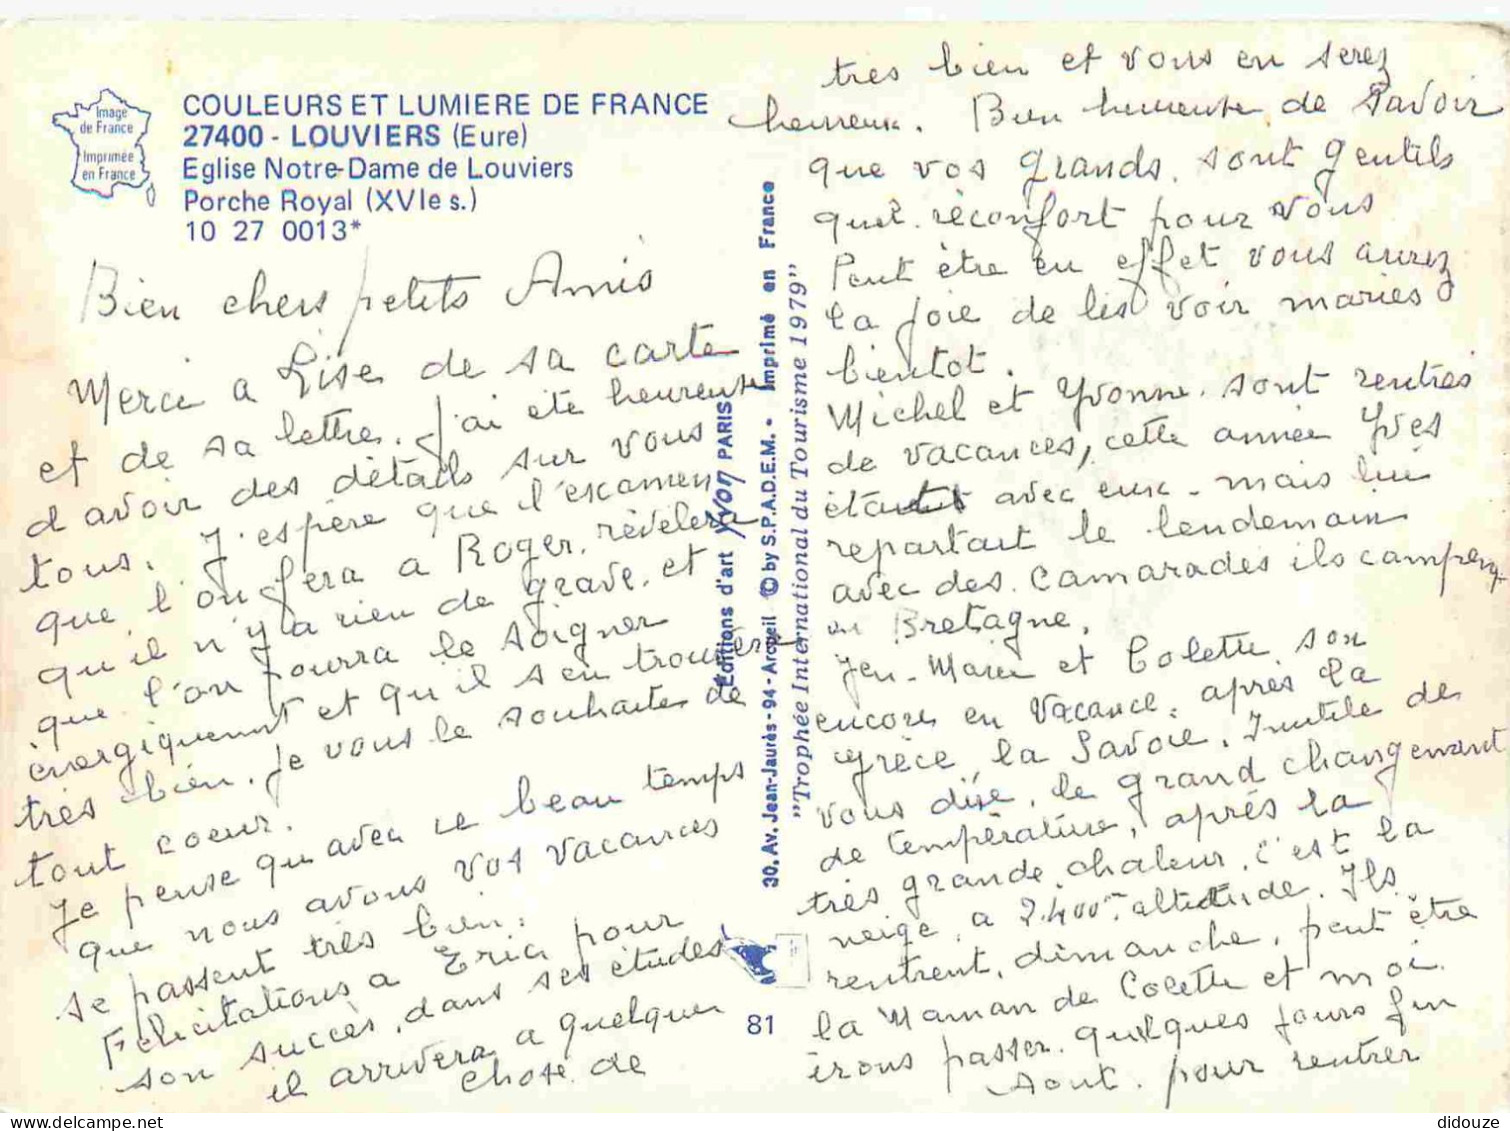 Image
de France
Imprimée
en France
COULEURS ET LUMIERE DE FRANCE
27400 - LOUVIERS (Eure)
Eglise Notre-Dame de Louviers
Porche Royal (XVIe s.)
10 27 0013*
Bien chers petits Amis
Merci a Lise de sa carte
et de sa lettre. J'ai été heureuse
d avoir des détails sur vous
tous. J'espère que l'examen
que l'on fera a Roger, révèlera
qu'il n'y a rien de grave, et
que l'on pourra le soigner
énergiquement et qu'il s'en trouvera
très bien. Je vous le souhaite de
tout coeur.
Je pense qu avec ce beau temps
que nous avons vos vacances
se passent très bien.
Félicitations a Eric, pour
son succès, dans ses études
il arrivera a quelque
chose de
Editions d'art YVON PARIS
30, Av. Jean-Jaurès - 94 - Arcueil © by S.P.A.D.E.M. - Imprimé en France
"Trophée International du Tourisme 1979"
81
tres bien et vous en serez
heureux. Bien heureuse de savoir
que vos grands. sont gentils
quel réconfort pour vous
Peut être en effet vous aurez
la joie de les voir mariés
bientot.
Michel et Yvonne. sont rentrés
de vacances, cette année Yves
était avec eux - mais lui
repartait le lendemain
avec des. camarades ils campent
en Bretagne.
Jen-Marie et Colette. son
encore en vacance, après la
Grèce, la Savoie. Inutile de
vous dire, le grand changement
de température, après la
très grande, chaleur, c'est la
neige, a 2.400m altitude. Ils
rentrent, dimanche, peut être
la Maman de Colette et moi
irons passer. quelques jours fin
Aout. pour rentrer
didouze